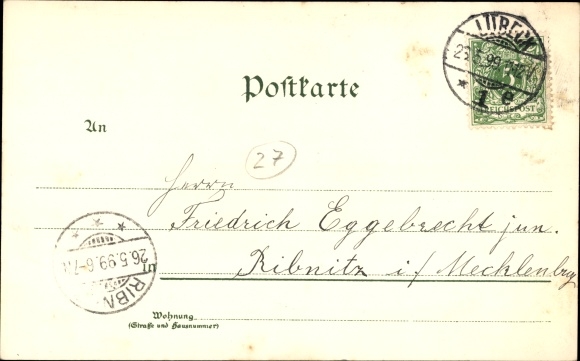 LÜBECK
1 e
REICHSPOST
Postkarte
An
27
Herrn
Friedrich Eggebrecht jun.
Ribnitz i/ Mecklenbrg
26.5.99.6-7
In
Wohnung
(Straße und Hausnummer)